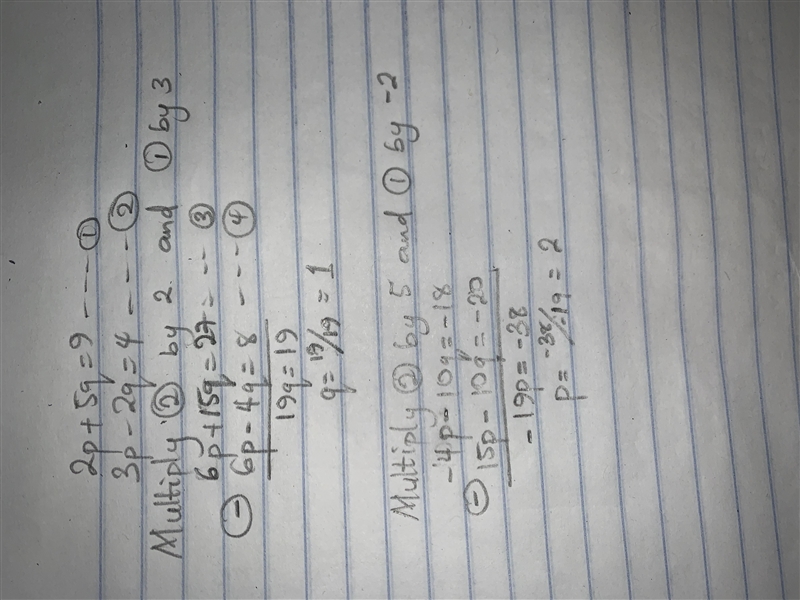 2p + 5q = 9 ---- ①
3p - 2q = 4 ---- ②
Multiply ② by 2 and ① by 3
6p + 15q = 27 --- ③
⊖ 6p - 4q = 8 --- ④
19q = 19
q = 19/19 = 1
Multiply ② by 5 and ① by -2
-4p - 10q = -18
⊖ 15p - 10q = -20
-19p = -38
p = -38/-19 = 2